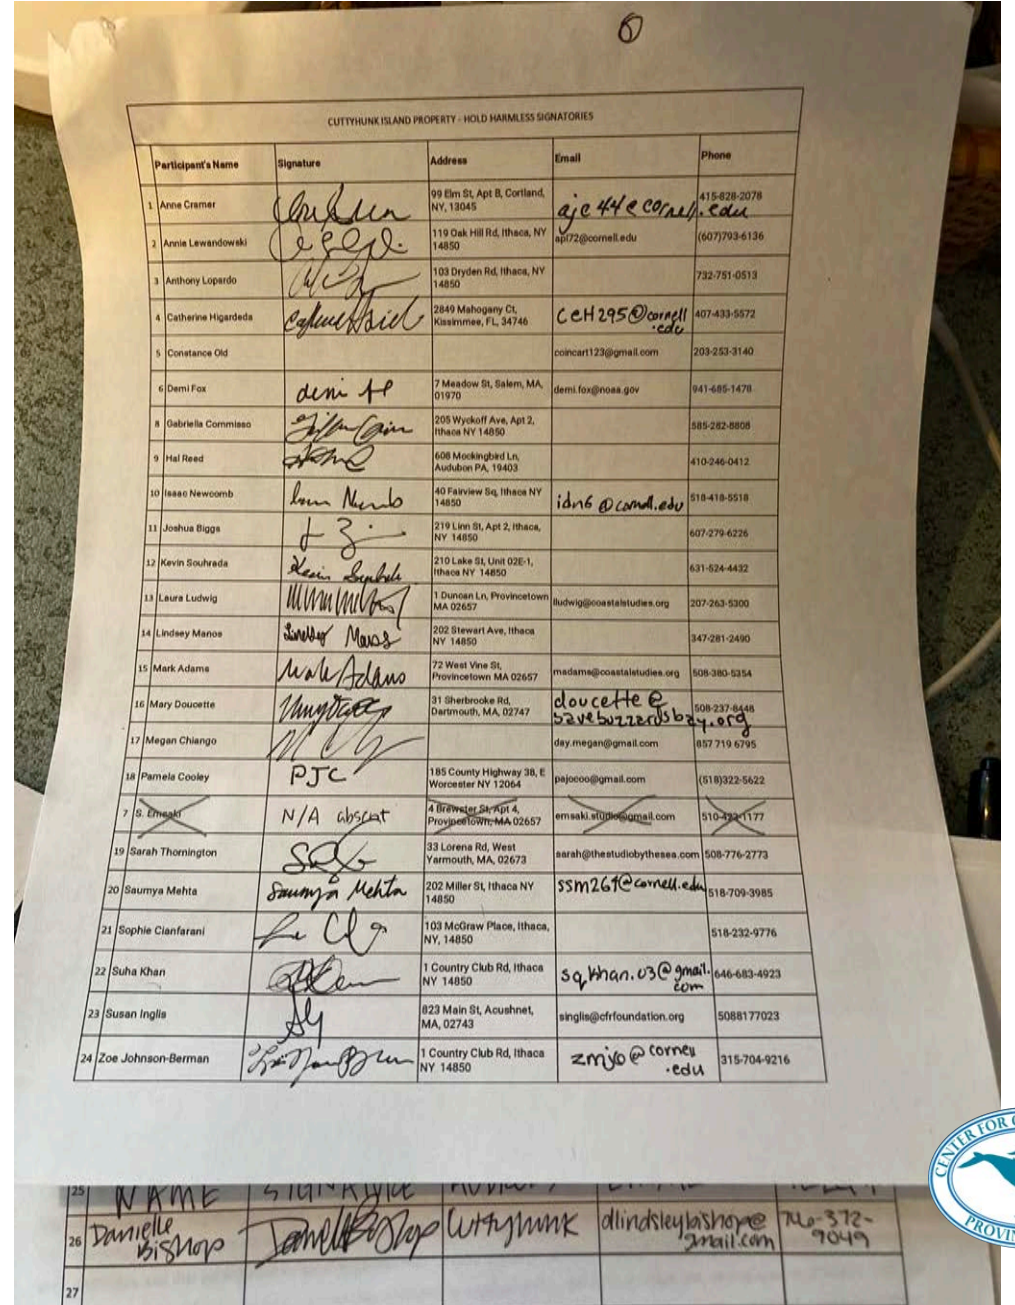 CUTTYHUNK ISLAND PROPERTY - HOLD HARMLESS SIGNATORIES
Participant's Name Signature Address Email Phone
1 Anne Cramer 99 Elm St, Apt B, Cortland, NY, 13045 ajc44@cornell.edu 415-828-2078
2 Annie Lewandowski 119 Oak Hill Rd, Ithaca, NY 14850 apl72@cornell.edu (607)793-6136
3 Anthony Lopardo 103 Dryden Rd, Ithaca, NY 14850 732-751-0513
4 Catherine Higardeda 2849 Mahogany Ct, Kissimmee, FL, 34746 CEH295@cornell.edu 407-433-5572
5 Constance Old coincart123@gmail.com 203-253-3140
6 Demi Fox demi 7 Meadow St, Salem, MA, 01970 demi.fox@noaa.gov 941-685-1478
8 Gabriella Commisso 205 Wyckoff Ave, Apt 2, Ithaca NY 14850 585-282-8808
9 Hal Reed 608 Mockingbird Ln, Audubon PA, 19403 410-246-0412
10 Isaac Newcomb 40 Fairview Sq, Ithaca NY 14850 idn6@cornell.edu 518-418-5518
11 Joshua Biggs 219 Linn St, Apt 2, Ithaca, NY 14850 607-279-6226
12 Kevin Souhrada Kevin 210 Lake St, Unit 02E-1, Ithaca NY 14850 631-624-4432
13 Laura Ludwig 1 Duncan Ln, Provincetown MA 02657 lludwig@coastalstudies.org 207-263-5300
14 Lindsey Manos Lindsey Manos 202 Stewart Ave, Ithaca NY 14850 347-281-2490
15 Mark Adams Mark Adams 72 West Vine St, Provincetown MA 02657 madams@coastalstudies.org 508-380-5354
16 Mary Doucette 31 Sherbrooke Rd, Dartmouth, MA, 02747 doucette@savebuzzardsbay.org 508-237-8448
17 Megan Chiango day.megan@gmail.com 857 719 6795
18 Pamela Cooley PJC 185 County Highway 38, E Worcester NY 12064 pajocoo@gmail.com (518)322-5622
7 S. Emsaki N/A absent 4 Brewster St, Apt 4, Provincetown, MA 02657 emsaki.studio@gmail.com 510-422-1177
19 Sarah Thornington 33 Lorena Rd, West Yarmouth, MA, 02673 sarah@thestudiobythesea.com 508-776-2773
20 Saumya Mehta Saumya Mehta 202 Miller St, Ithaca NY 14850 ssm261@cornell.edu 518-709-3985
21 Sophie Cianfarani 103 McGraw Place, Ithaca, NY, 14850 518-232-9776
22 Suha Khan 1 Country Club Rd, Ithaca NY 14850 sq.khan.03@gmail.com 646-683-4923
23 Susan Inglis 823 Main St, Acushnet, MA, 02743 singlis@cfrfoundation.org 5088177023
24 Zoe Johnson-Berman 1 Country Club Rd, Ithaca NY 14850 zmj10@cornell.edu 315-704-9216
25 NAME SIGNATURE
26 Danielle Bishop Danielle Bishop Cuttyhunk dlindsleybishop@gmail.com 740-372-9049
27
CENTER FOR
PROVIN